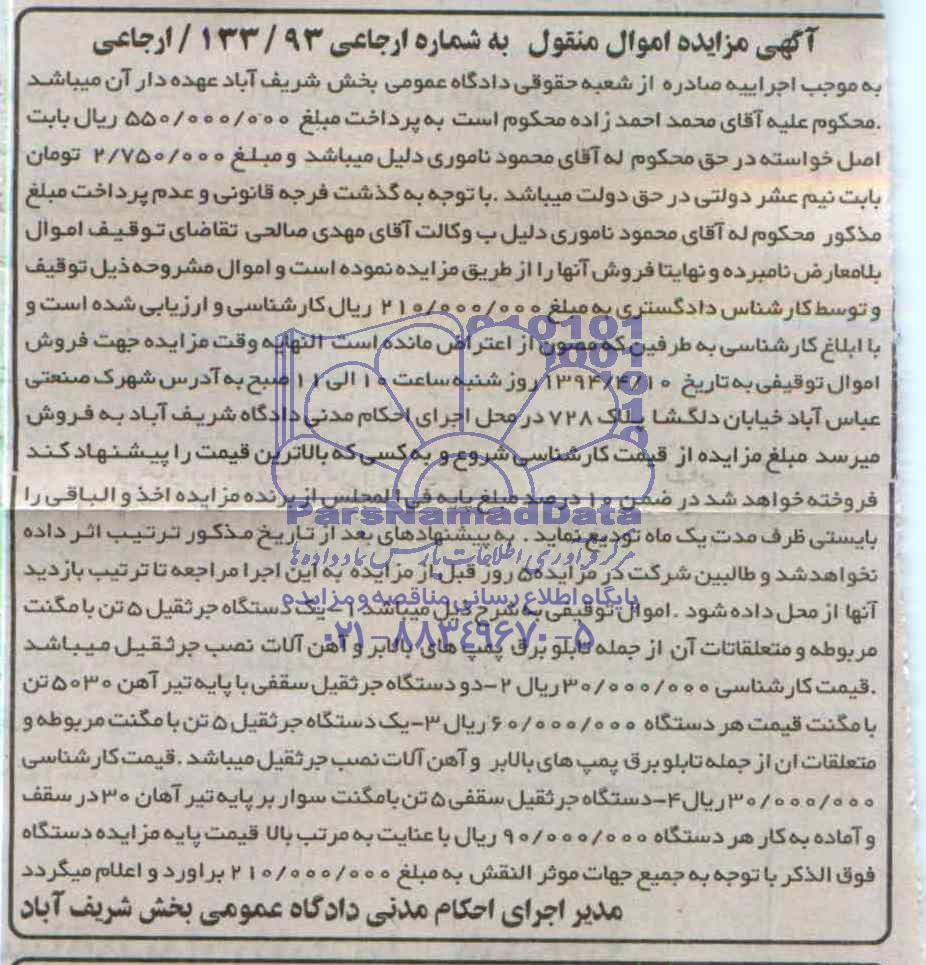 آگهی مزایده اموال منقول به شماره ارجاعی ۹۳ / ۱۳۳ / ارجاعی
به موجب اجراییه صادره از شعبه حقوقی دادگاه عمومی بخش شریف آباد عهده دار آن میباشد
.محکوم علیه آقای محمد احمد زاده محکوم است به پرداخت مبلغ ۵۵۰/۰۰۰/۰۰۰ ریال بابت
اصل خواسته در حق محکوم له آقای محمود ناموری دلیل میباشد و مبلغ ۲/۷۵۰/۰۰۰ تومان
بابت نیم عشر دولتی در حق دولت میباشد .با توجه به گذشت فرجه قانونی و عدم پرداخت مبلغ
مذکور محکوم له آقای محمود ناموری دلیل ب وکالت آقای مهدی صالحی تقاضای توقیف اموال
بلامعارض نامبرده و نهایتا فروش آنها را از طریق مزایده نموده است و اموال مشروحه ذیل توقیف
و توسط کارشناس دادگستری به مبلغ ۲۱۰/۰۰۰/۰۰۰ ریال کارشناسی و ارزیابی شده است و
با ابلاغ کارشناسی به طرفین که مصون از اعتراض مانده است النهایه وقت مزایده جهت فروش
اموال توقیفی به تاریخ ۱۳۹۴/۴/۱۰ روز شنبه ساعت ۱۰ الی ۱۱ صبح به آدرس شهرک صنعتی
عباس آباد خیابان دلگشا پلاک ۷۲۸ در محل اجرای احکام مدنی دادگاه شریف آباد به فروش
میرسد مبلغ مزایده از قیمت کارشناسی شروع و به کسی که بالاترین قیمت را پیشنهاد کند
فروخته خواهد شد در ضمن ۱۰ درصد مبلغ پایه فی المجلس از برنده مزایده اخذ و الباقی را
بایستی ظرف مدت یک ماه تودیع نماید . به پیشنهادهای بعد از تاریخ مذکور ترتیب اثر داده
نخواهدشد و طالبین شرکت در مزایده ۵ روز قبل از مزایده به این اجرا مراجعه تا ترتیب بازدید
آنها از محل داده شود .اموال توقیفی به شرح ذیل میباشد ۱-یک دستگاه جرثقیل ۵ تن با مگنت
مربوطه و متعلقاتات آن از جمله تابلو برق پمپ های بالابر و آهن آلات نصب جرثقیل میباشد
.قیمت کارشناسی ۳۰/۰۰۰/۰۰۰ ریال ۲-دو دستگاه جرثقیل سقفی با پایه تیر آهن ۵۰۳۰ تن
با مگنت قیمت هر دستگاه ۶۰/۰۰۰/۰۰۰ ریال ۳-یک دستگاه جرثقیل ۵ تن با مگنت مربوطه و
متعلقات ان از جمله تابلو برق پمپ های بالابر و آهن آلات نصب جرثقیل میباشد .قیمت کارشناسی
۳۰/۰۰۰/۰۰۰ ریال ۴-دستگاه جرثقیل سقفی ۵ تن بامگنت سوار بر پایه تیر آهان ۳۰ در سقف
و آماده به کار هر دستگاه ۹۰/۰۰۰/۰۰۰ ریال با عنایت به مرتب بالا قیمت پایه مزایده دستگاه
فوق الذکر با توجه به جمیع جهات موثر النقش به مبلغ ۲۱۰/۰۰۰/۰۰۰ براورد و اعلام میگردد
مدیر اجرای احکام مدنی دادگاه عمومی بخش شریف آباد
ParsNamadData
مرکز فرآوری اطلاعات پارس نماد داده ها
پایگاه اطلاع رسانی مناقصه و مزایده
۰۲۱-۸۸۳۴۹۶۷۰-۵